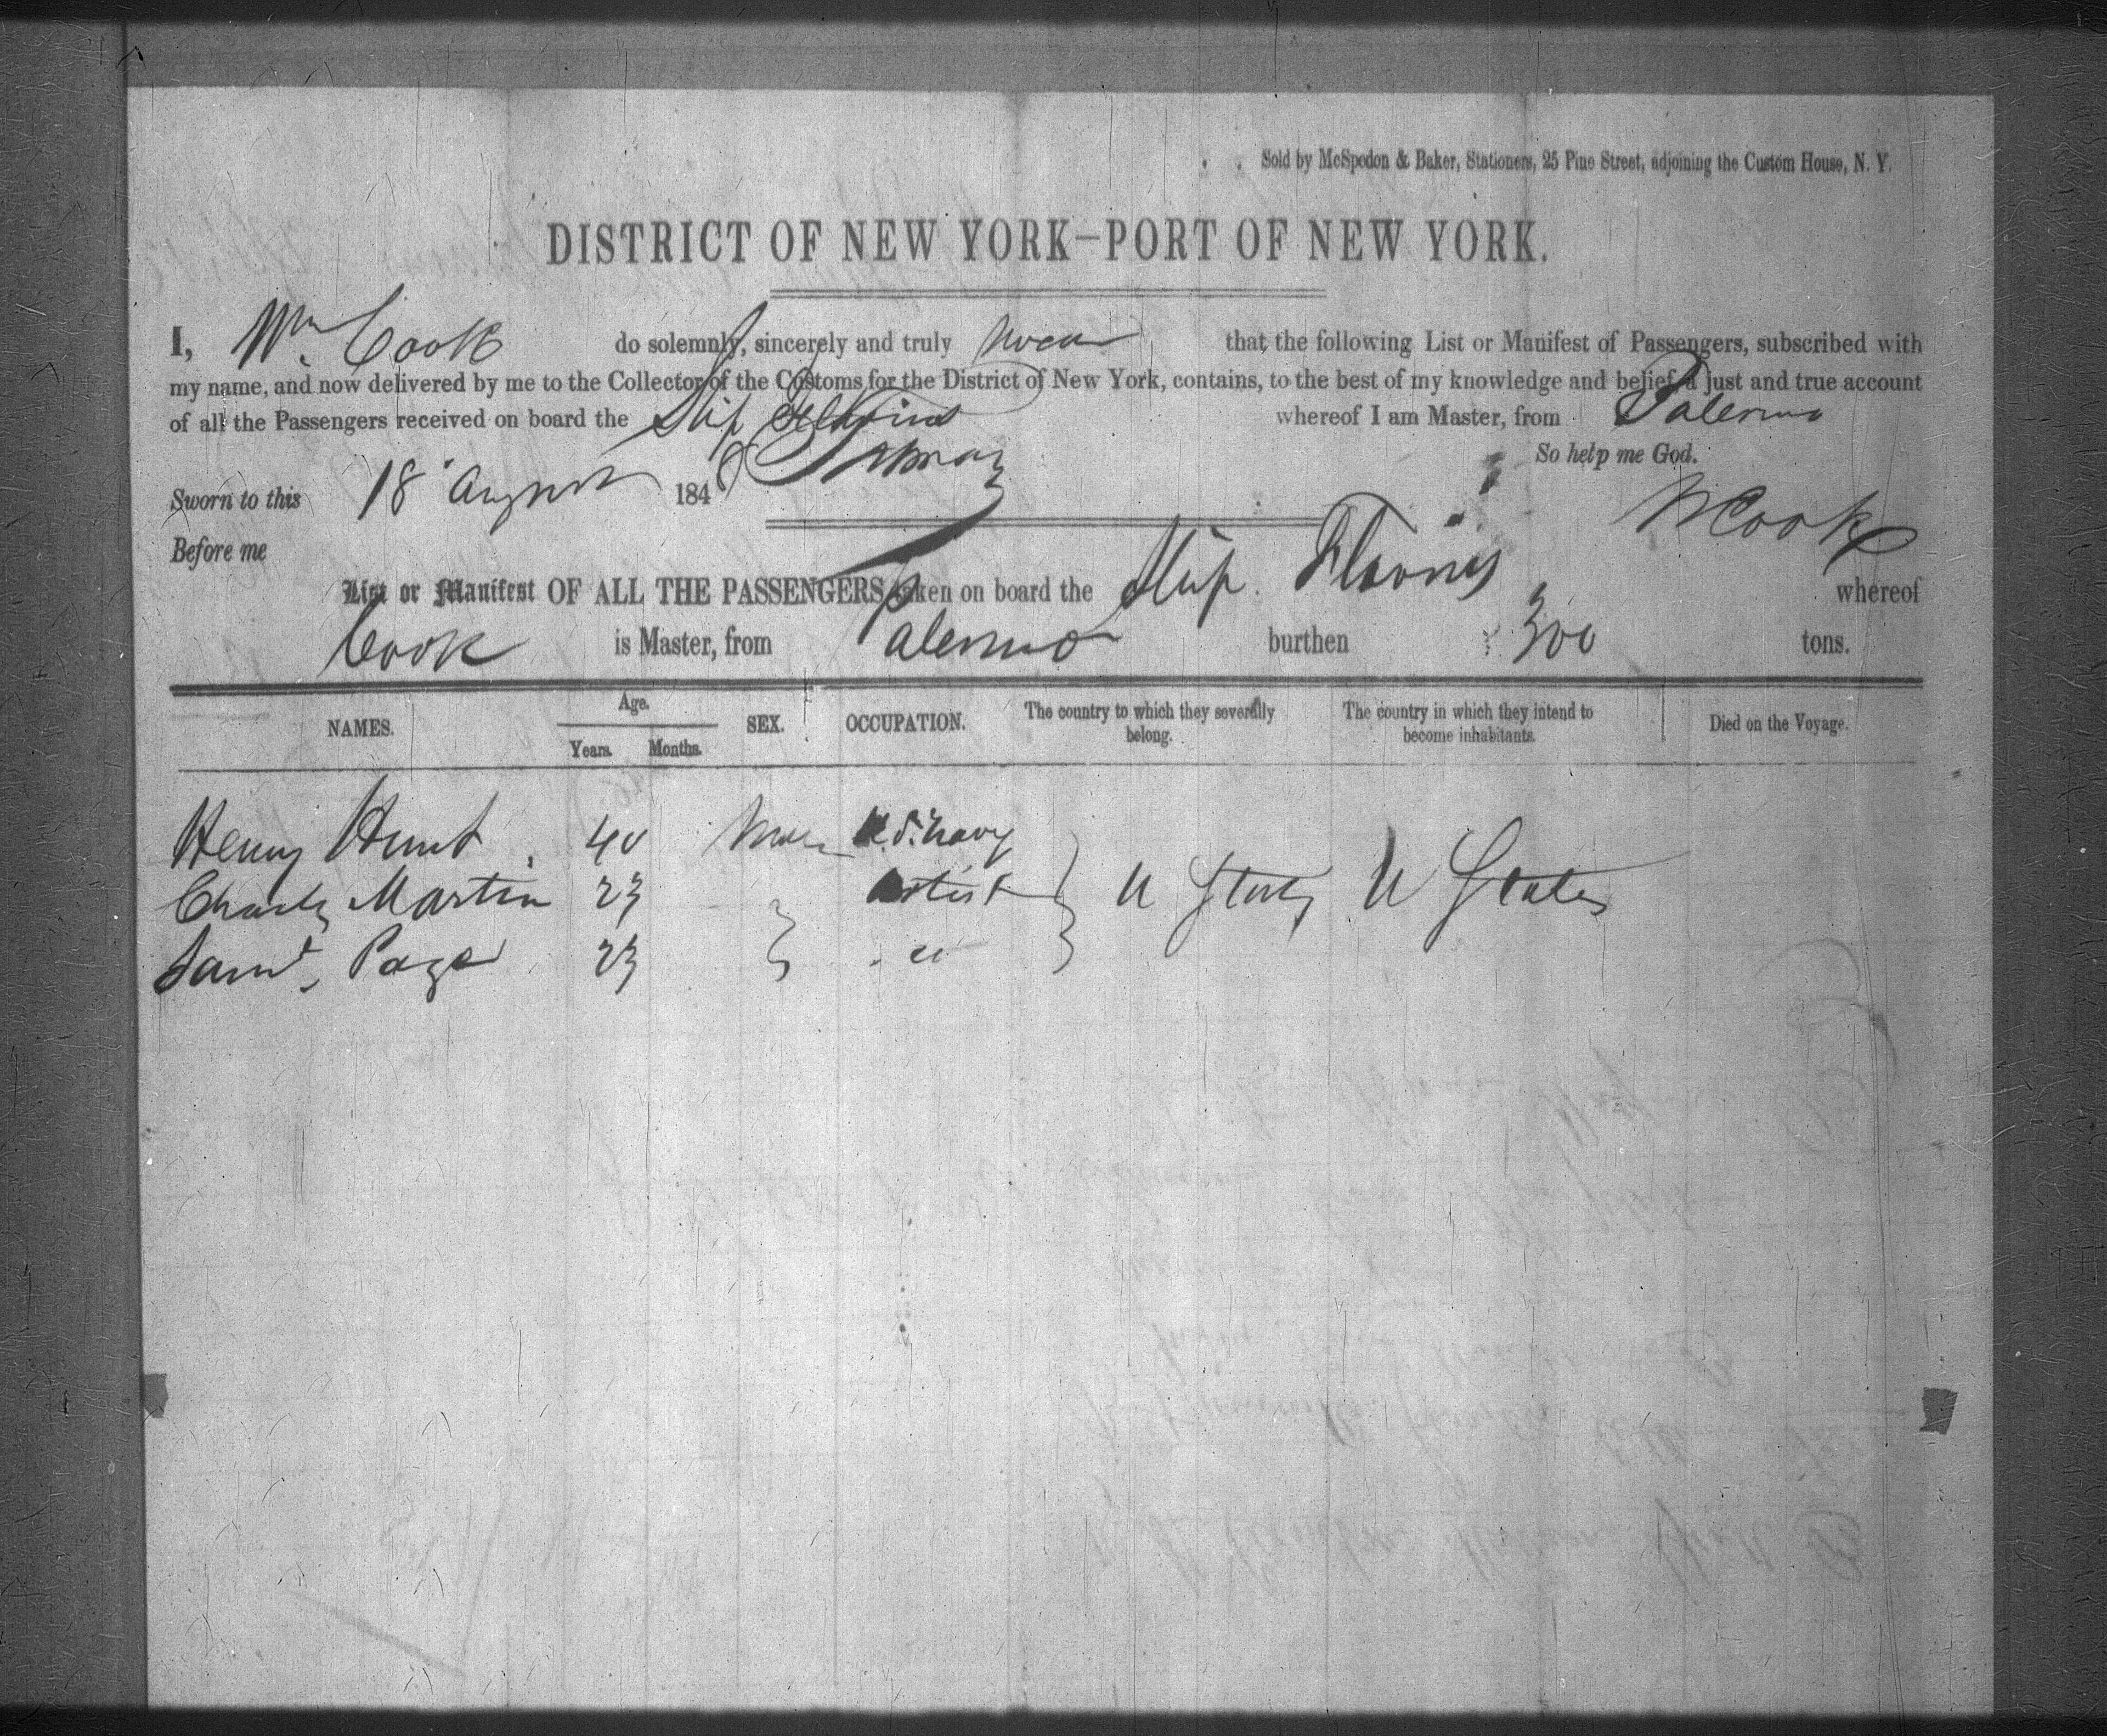 Sold by McSpedon & Baker, Stationers, 25 Pine Street, adjoining the Custom House, N. Y.
DISTRICT OF NEW YORK–PORT OF NEW YORK.
I, Wm Cook do solemnly, sincerely and truly swear that the following List or Manifest of Passengers, subscribed with
my name, and now delivered by me to the Collector of the Customs for the District of New York, contains, to the best of my knowledge and belief, a just and true account
of all the Passengers received on board the Ship whereof I am Master, from Palermo
So help me God.
Sworn to this 18 August 1848
W Cook
Before me
List or Manifest OF ALL THE PASSENGERS taken on board the Ship whereof
Cook is Master, from Palermo burthen 300 tons.
NAMES. Age. Years. Months. SEX. OCCUPATION. The country to which they severally belong. The country in which they intend to become inhabitants. Died on the Voyage.
Henry Hunt 40 Male U.S. Navy
Charls Martin 23 Artist U States U States
Saml. Page 23